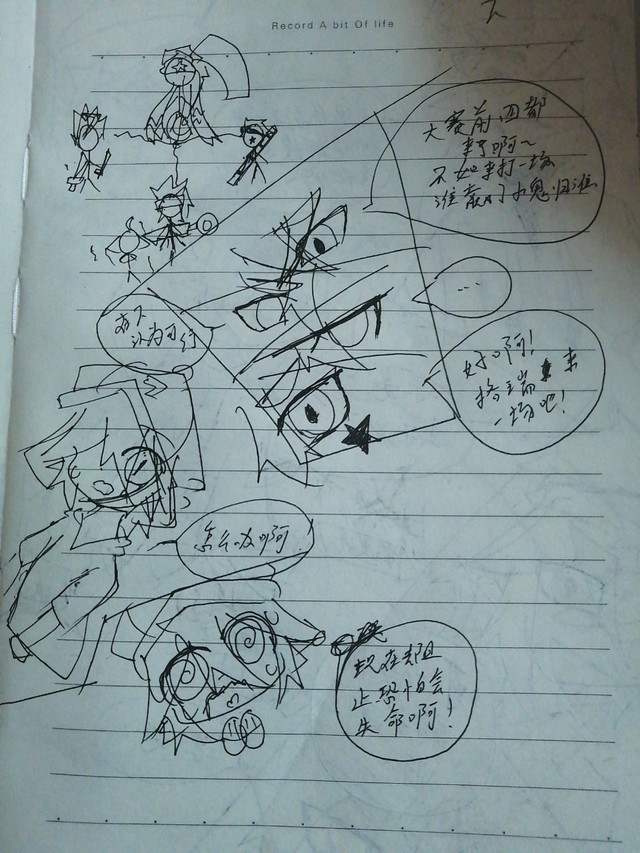 Record A bit Of life
大赛前四都
来了啊~
不如来打一场
谁赢了小鬼归谁
...
在下
认为可行
好啊!
格瑞来
一场吧!
怎么办啊
现在去阻
止恐怕会
失命啊!